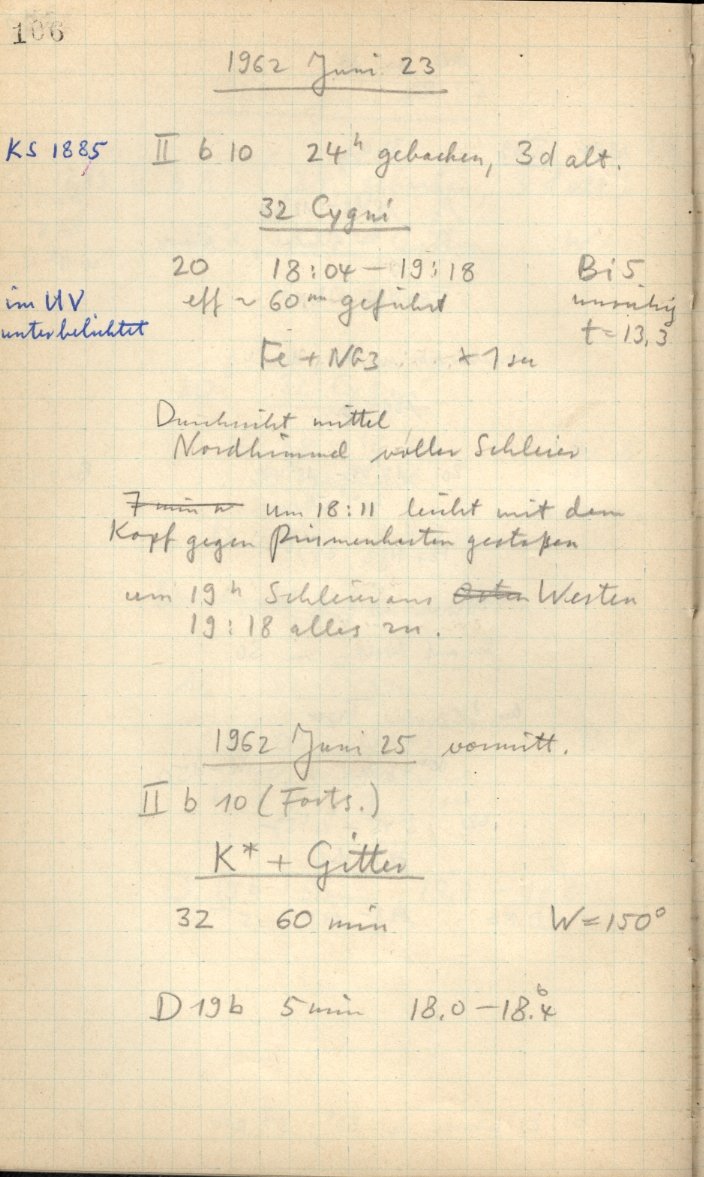 106
1962 Juni 23
KS 1885 II b 10 24h gebacken, 3 d alt.
32 Cygni
20 18:04 – 19:18 Bi 5
im UV eff ~ 60 m geführt unruhig
unterbelichtet t = 13,3
Fe + NG3 * 1
Durchsicht mittel
Nordhimmel voller Schleier
7 min um 18:11 leicht mit dem
Kopf gegen Prismenkasten gestoßen
um 19h Schleier aus Osten Westen
19:18 alles zu.
1962 Juni 25 vormitt.
II b 10 (Forts.)
K* + Gitter
32 60 min W = 150°
D 19b 5 min 18.0 – 18.4